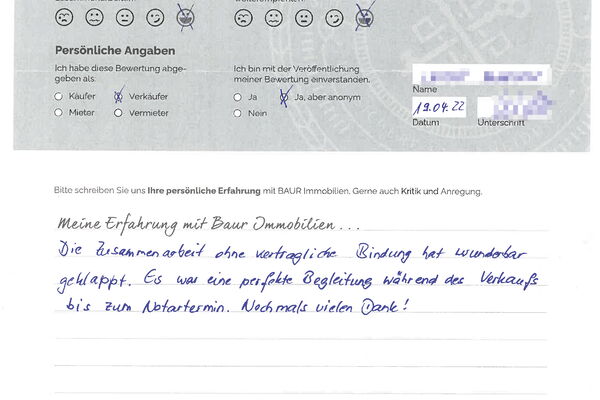 Persönliche Angaben
Ich habe diese Bewertung abge-
geben als:
Käufer
Verkäufer
Mieter
Vermieter
Ich bin mit der Veröffentlichung
meiner Bewertung einverstanden.
Ja
Ja, aber anonym
Nein
Name
19.04.22
Datum
Unterschrift
Bitte schreiben Sie uns Ihre persönliche Erfahrung mit BAUR Immobilien. Gerne auch Kritik und Anregung.
Meine Erfahrung mit Baur Immobilien ...
Die Zusammenarbeit ohne vertragliche Bindung hat wunderbar
geklappt. Es war eine perfekte Begleitung während des Verkaufs
bis zum Notartermin. Nochmals vielen Dank!